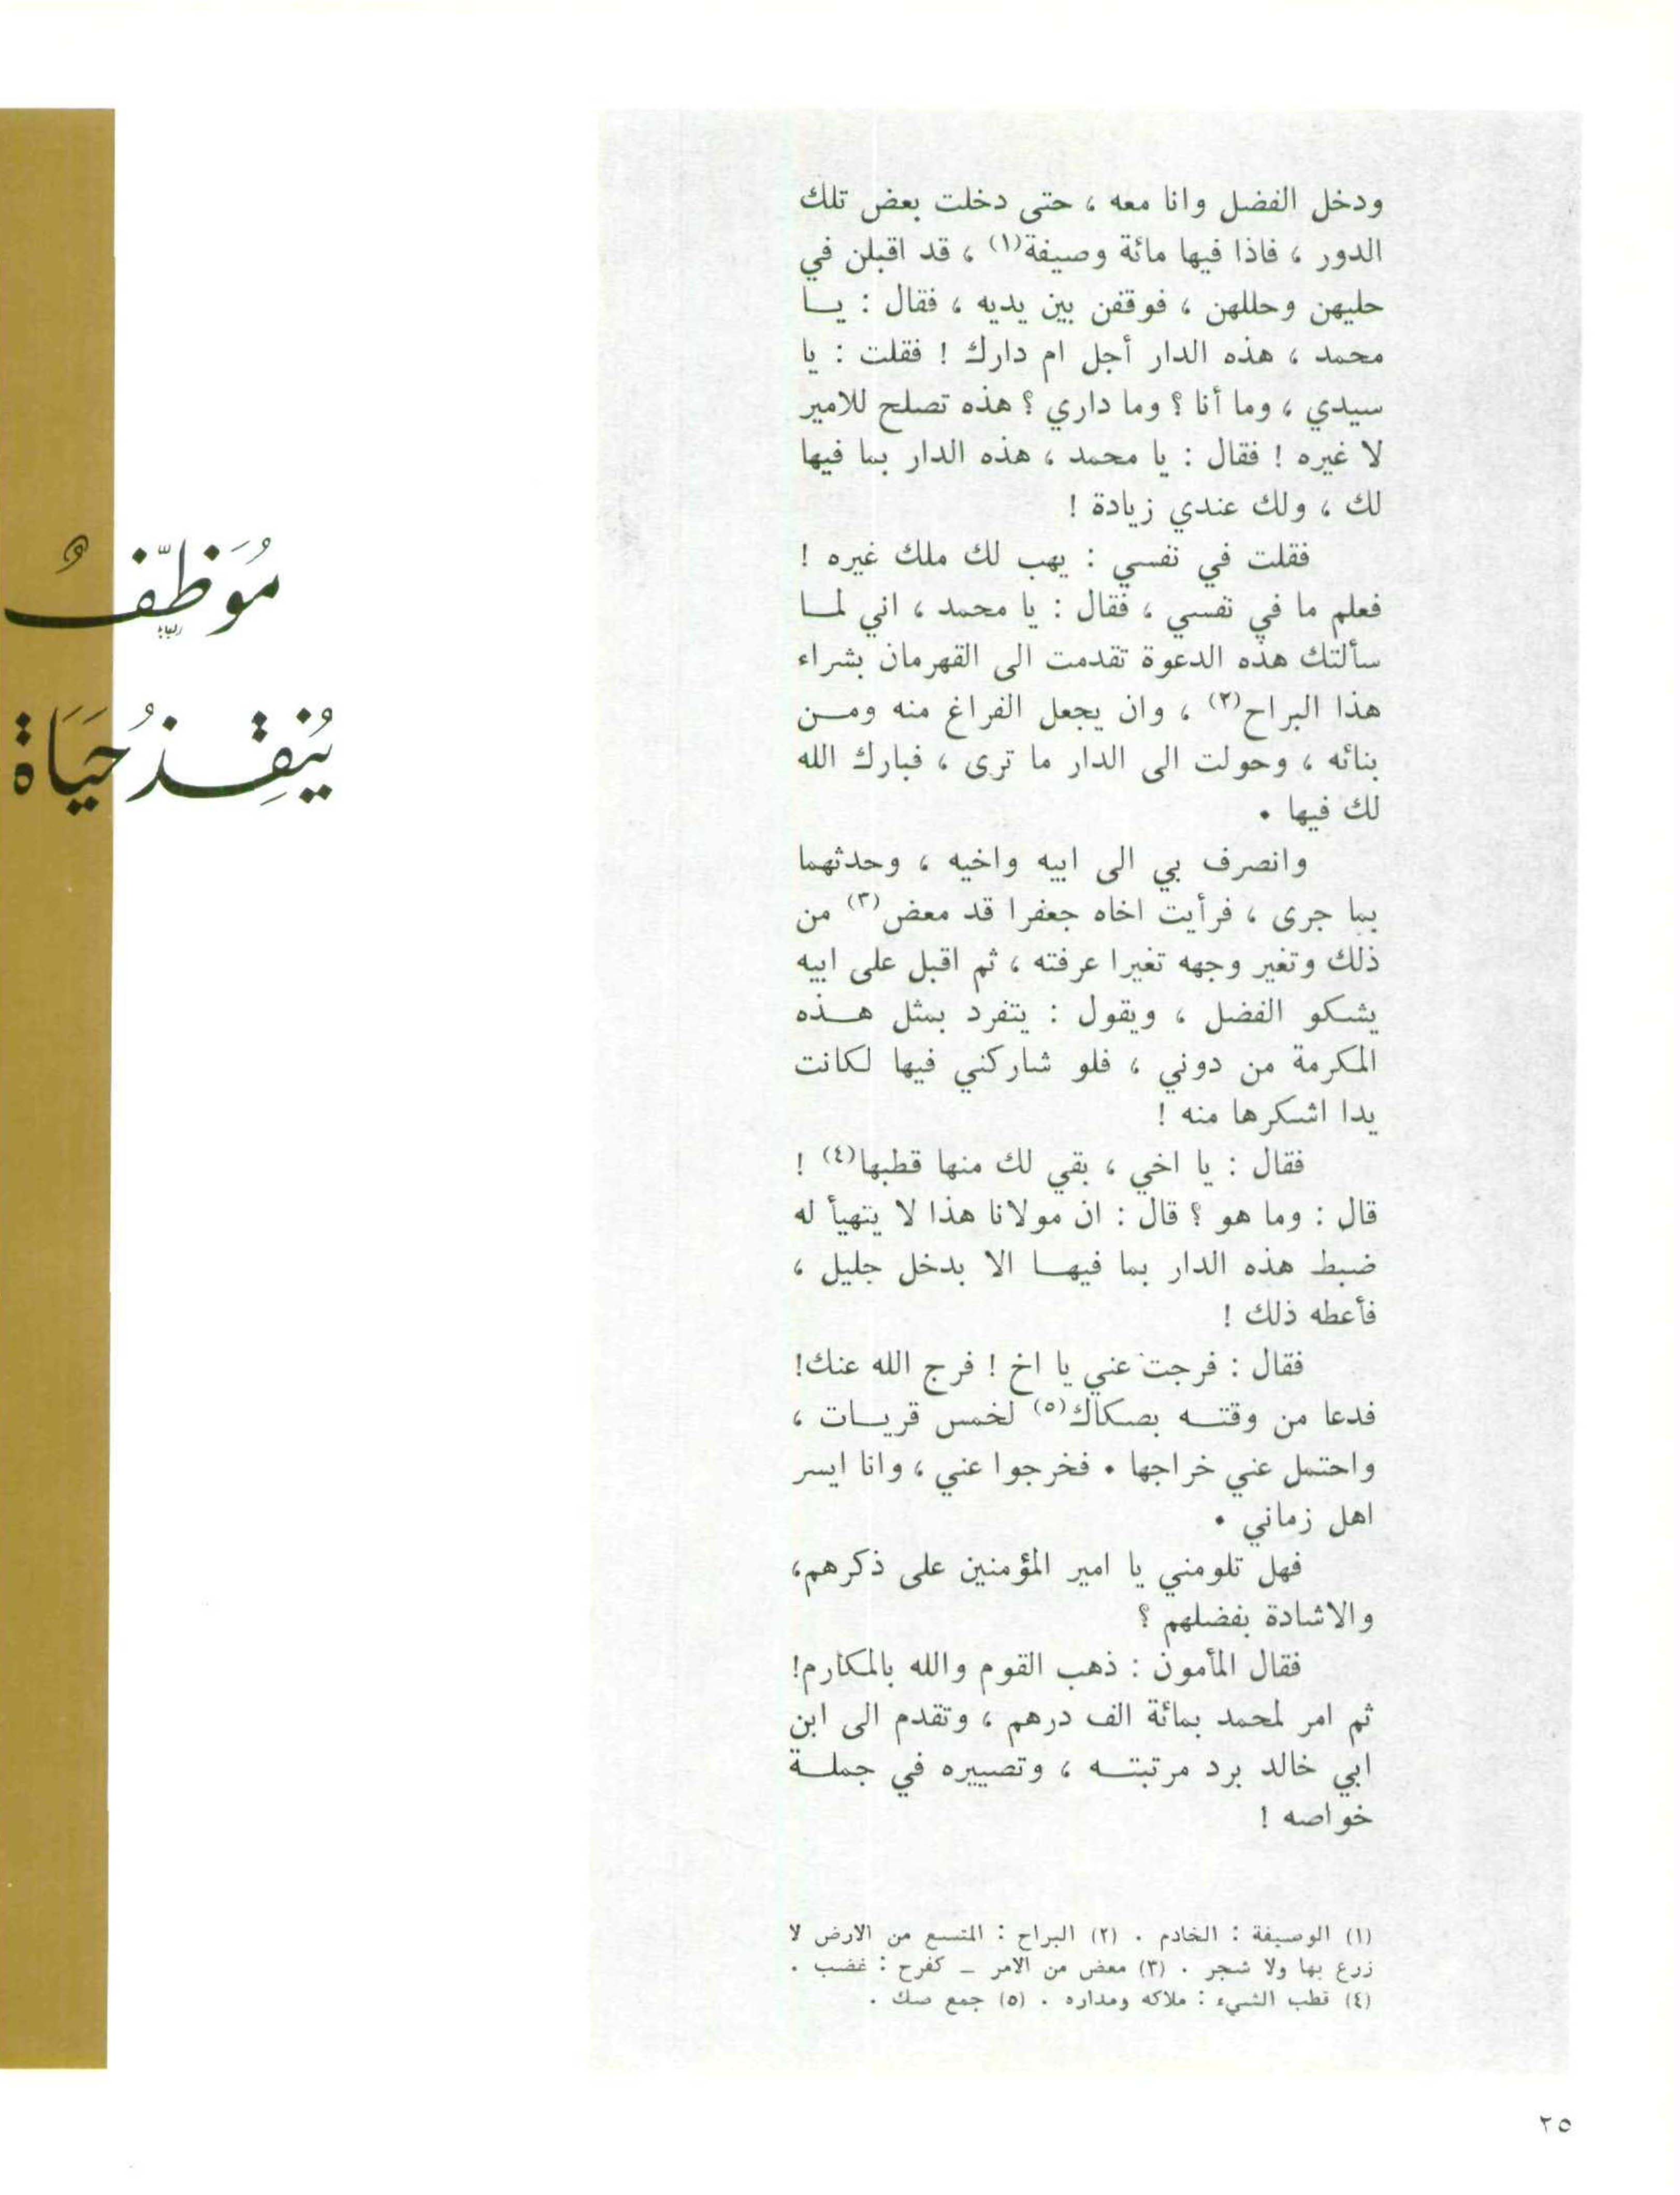 ودخل الفضل وانا معه ، حتى دخلت بعض تلك
الدور ، فاذا فيها مائة وصيفة(١) ، قد اقبلن في
حليهن وحللهن ، فوقفن بين يديه ، فقال : يــا
محمد ، هذه الدار أجل ام دارك ! فقلت : يا
سيدي ، وما أنا ؟ وما داري ؟ هذه تصلح للامير
لا غيره ! فقال : يا محمد ، هذه الدار بما فيها
لك ، ولك عندي زيادة !
فقلت في نفسي : يهب لك ملك غيره !
فعلم ما في نفسي ، فقال : يا محمد ، اني لمــا
سألتك هذه الدعوة تقدمت الى القهرمان بشراء
هذا البراح(٢) ، وان يجعل الفراغ منه ومــن
بنائه ، وحولت الى الدار ما ترى ، فبارك الله
لك فيها •
وانصرف بي الى ابيه واخيه ، وحدثهما
بما جرى ، فرأيت اخاه جعفرا قد معض(٣) من
ذلك وتغير وجهه تغيرا عرفته ، ثم اقبل على ابيه
يشكو الفضل ، ويقول : يتفرد بمثل هــذه
المكرمة من دوني ، فلو شاركني فيها لكانت
يدا اشكرها منه !
فقال : يا اخي ، بقي لك منها قطبها(٤) !
قال : وما هو ؟ قال : ان مولانا هذا لا يتهيأ له
ضبط هذه الدار بما فيهــا الا بدخل جليل ،
فأعطه ذلك !
فقال : فرجت عني يا اخ ! فرج الله عنك!
فدعا من وقتــه بصكاك(٥) لخمس قريــات ،
واحتمل عني خراجها • فخرجوا عني ، وانا ايسر
اهل زماني •
فهل تلومني يا امير المؤمنين على ذكرهم،
والاشادة بفضلهم ؟
فقال المأمون : ذهب القوم والله بالمكارم!
ثم امر لمحمد بمائة الف درهم ، وتقدم الى ابن
ابي خالد برد مرتبتــه ، وتصييره في جملــة
خواصه !
(١) الوصيفة : الخادم . (٢) البراح : المتسع من الارض لا
زرع بها ولا شجر . (٣) معض من الامر – كفرح : غضب .
(٤) قطب الشيء : ملاكه ومداره . (٥) جمع صك .
مُوَظِّفٌ
يُنقِذُ حَيَاة
٢٥